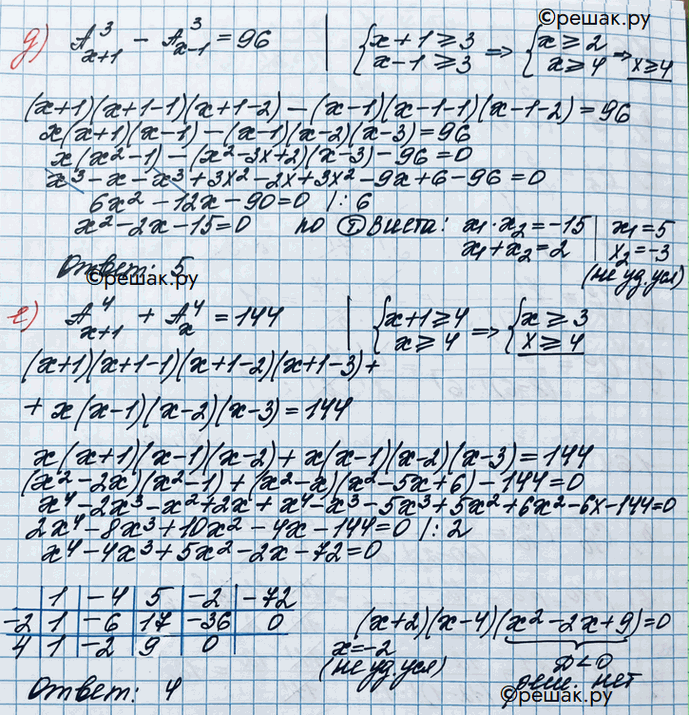 ©решак.ру
д) A³ₓ₊₁ − A³ₓ₋₁ = 96 | {x+1⩾3 x−1⩾3 => {x⩾2 x⩾4 => x⩾4
(x+1)(x+1−1)(x+1−2) − (x−1)(x−1−1)(x−1−2) = 96
x(x+1)(x−1) − (x−1)(x−2)(x−3) = 96
x(x²−1) − (x²−3x+2)(x−3) − 96 = 0
x³ − x − x³ + 3x² − 2x + 3x² − 9x + 6 − 96 = 0
6x² − 12x − 90 = 0 |: 6
x² − 2x − 15 = 0 по т. Виета: x₁·x₂ = −15 | x₁ = 5
x₁+x₂ = 2 | x₂ = −3
(не уд. усл)
Ответ: 5
©решак.ру
е) A⁴ₓ₊₁ + A⁴ₓ = 144 | {x+1⩾4 x⩾4 => {x⩾3 x⩾4
(x+1)(x+1−1)(x+1−2)(x+1−3) +
+ x(x−1)(x−2)(x−3) = 144
x(x+1)(x−1)(x−2) + x(x−1)(x−2)(x−3) = 144
(x²−2x)(x²−1) + (x²−x)(x²−5x+6) − 144 = 0
x⁴ − 2x³ − x² + 2x + x⁴ − x³ − 5x³ + 5x² + 6x² − 6x − 144 = 0
2x⁴ − 8x³ + 10x² − 4x − 144 = 0 |: 2
x⁴ − 4x³ + 5x² − 2x − 72 = 0
1 −4 5 −2 −72
−2 1 −6 17 −36 0
4 1 −2 9 0
(x+2)(x−4)(x²−2x+9) = 0
x = −2
(не уд. усл)
D<0
реш. нет
Ответ: 4
©решак.ру